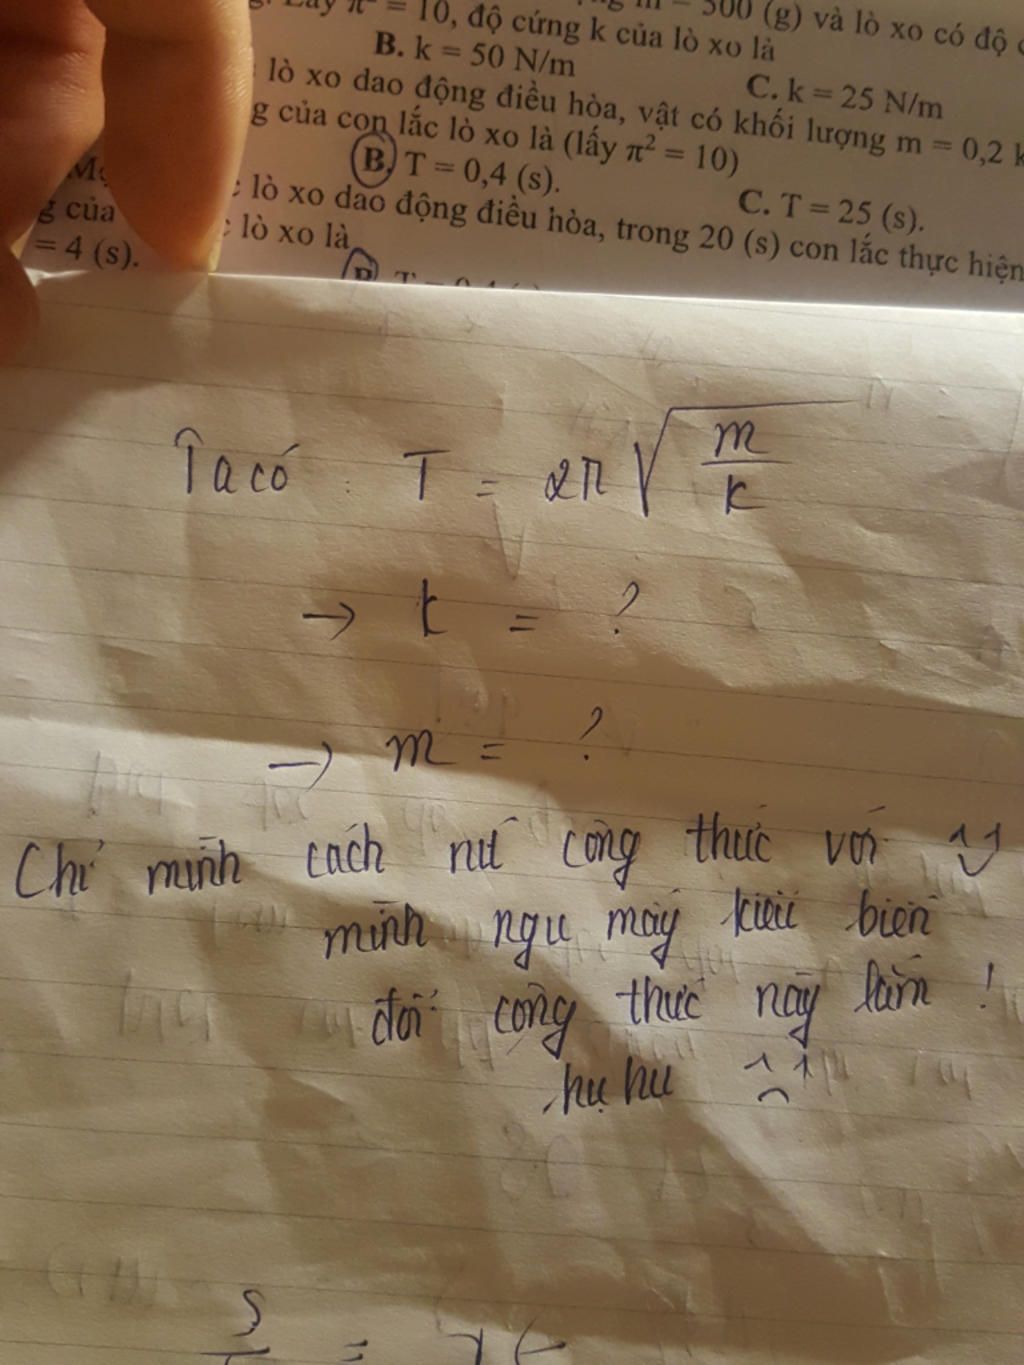 g. Lấy π² = 10, độ cứng k của lò xo là
500 (g) và lò xo có độ
B. k = 50 N/m
C. k = 25 N/m
lò xo dao động điều hòa, vật có khối lượng m = 0,2 k
g của con lắc lò xo là (lấy π² = 10)
B. T = 0,4 (s).
C. T = 25 (s).
lò xo dao động điều hòa, trong 20 (s) con lắc thực hiện
g của : lò xo là
= 4 (s).
Ta có : T = 2π√(m/k)
→ k = ?
→ m = ?
Chỉ mình cách rút công thức với
mình ngu mấy kiểu biến
đổi công thức này lắm !
hu hu